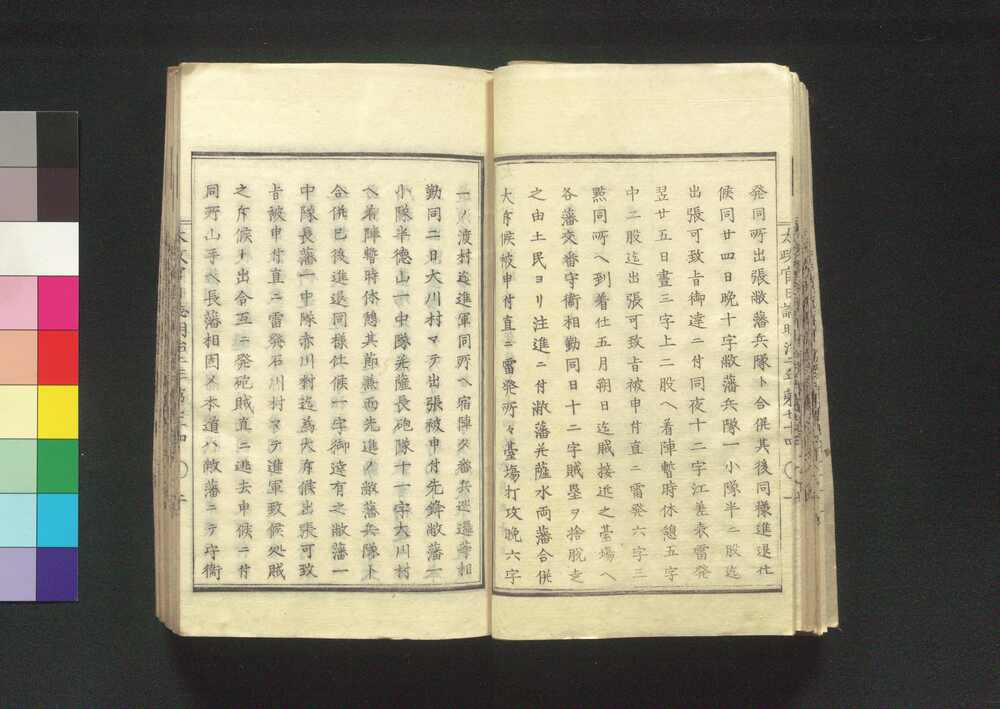 発同所出張敝藩兵隊ト合併其後同様進退仕
候同廿四日晩十字敝藩兵隊一小隊半二股迄
出張可致旨御達ニ付同夜十二字江差表雷発
翌廿五日晝三字上二股ヘ着陣暫時休憩五字
中二股迄出張可致旨被申付直ニ雷発六字三
㸃同所ヘ到着仕五月朔日迄賊接近之䑓場ヘ
各藩交番守衛相勤同日十二字賊塁ヲ捨脱走
之由土民ヨリ注進ニ付敝藩并薩水両藩合併
大斥候被申付直ニ雷発所々䑓場打攻晩六字
一ノ渡村迄進軍同所ヘ宿陣夕番兵巡邏等相
勤同二日大川村マテ出張被申付先鋒敝藩一
小隊半徳山一中隊并薩長砲隊十一字大川村
ヘ着陣暫時休憩其節兼而先進ノ敝藩兵隊ト
合併已後進退同様仕候一字御達有之敝藩一
中隊長藩一中隊赤川村迄為大斥候出張可致
旨被申付直ニ雷発石川村マテ進軍致候処賊
之斥候ト出合互ニ発砲賊直ニ逃去申候ニ付
同所山手ヘ長藩相固メ本道ハ敝藩ニテ守衛
太政官日誌明治二年第七十四